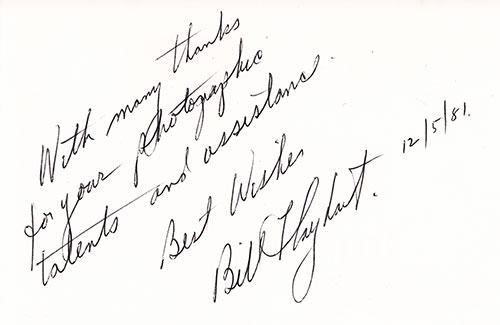 With many thanks
for your photographic
talents and assistance.
Best Wishes
Bill Flayhart.
12/5/81.